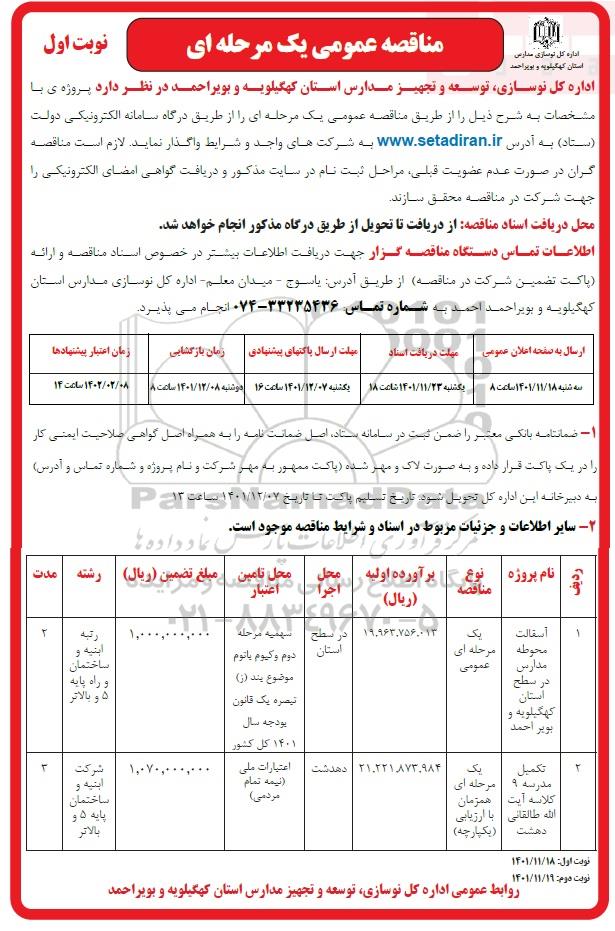 نوبت اول
مناقصه عمومی یک مرحله ای
اداره کل نوسازی مدارس
استان کهگیلویه و بویراحمد
اداره کل نوسازی، توسعه و تجهیز مدارس استان کهگیلویه و بویراحمد در نظر دارد پروژه ی با
مشخصات به شرح ذیل را از طریق مناقصه عمومی یک مرحله ای را از طریق درگاه سامانه الکترونیکی دولت
(ستاد) به آدرس www.setadiran.ir به شرکت های واجد و شرایط واگذار نماید. لازم است مناقصه
گران در صورت عدم عضویت قبلی، مراحل ثبت نام در سایت مذکور و دریافت گواهی امضای الکترونیکی را
جهت شرکت در مناقصه محقق سازند.
محل دریافت اسناد مناقصه: از دریافت تا تحویل از طریق درگاه مذکور انجام خواهد شد.
اطلاعات تماس دستگاه مناقصه گزار جهت دریافت اطلاعات بیشتر در خصوص اسناد مناقصه و ارائه
(پاکت تضمین شرکت در مناقصه) از طریق آدرس: یاسوج - میدان معلم- اداره کل نوسازی مدارس استان
کهگیلویه و بویراحمد احمد به شماره تماس: ۳۳۲۳۵۴۳۶-۰۷۴ انجام می پذیرد.
ارسال به صفحه اعلان عمومی | مهلت دریافت اسناد | مهلت ارسال پاکتهای پیشنهادی | زمان بازگشایی | زمان اعتبار پیشنهادها
سه شنبه ۱۴۰۱/۱۱/۱۸ ساعت ۸ | یکشنبه ۱۴۰۱/۱۱/۲۳ ساعت ۱۸ | یکشنبه ۱۴۰۱/۱۲/۰۷ ساعت ۱۶ | دوشنبه ۱۴۰۱/۱۲/۰۸ ساعت ۸ | ۱۴۰۲/۰۲/۰۸ ساعت ۱۴
۱- ضمانتنامه بانکی معتبر را ضمن ثبت در سامانه ستاد، اصل ضمانت نامه را به همراه اصل گواهی صلاحیت ایمنی کار
را در یک پاکت قرار داده و به صورت لاک و مهر شده (پاکت ممهور به مهر شرکت و نام پروژه و شماره تماس و آدرس)
به دبیرخانه این اداره کل تحویل شود. تاریخ تسلیم پاکت تا تاریخ ۱۴۰۱/۱۲/۰۷ ساعت ۱۳
ParsNamadData
۲- سایر اطلاعات و جزئیات مربوط در اسناد و شرایط مناقصه موجود است.
مرکز فرآوری اطلاعات پارس نماد داده ها
۰۲۱-۸۸۳۴۹۶۷۰-۵
ردیف | نام پروژه | نوع مناقصه | برآورده اولیه (ریال) | محل اجرا | محل تامین اعتبار | مبلغ تضمین (ریال) | رشته | مدت
۱ | آسفالت محوطه مدارس در سطح استان کهگیلویه و بویر احمد | یک مرحله ای عمومی | ۱۹،۹۶۳،۷۵۶،۰۱۳ | در سطح استان | سهمیه مرحله دوم وکیوم باتوم موضوع بند (ز) تبصره یک قانون بودجه سال ۱۴۰۱ کل کشور | ۱,۰۰۰,۰۰۰,۰۰۰ | رتبه ابنیه و ساختمان و راه پایه ۵ و بالاتر | ۲
۲ | تکمیل مدرسه ۹ کلاسه آیت الله طالقانی دهشت | یک مرحله ای همزمان با ارزیابی (یکپارچه) | ۲۱،۲۲۱،۸۷۳،۹۸۴ | دهدشت | اعتبارات ملی (نیمه تمام مردمی) | ۱,۰۷۰,۰۰۰,۰۰۰ | شرکت ابنیه و ساختمان پایه ۵ و بالاتر | ۳
نوبت اول: ۱۴۰۱/۱۱/۱۸
نوبت دوم: ۱۴۰۱/۱۱/۱۹
روابط عمومی اداره کل نوسازی، توسعه و تجهیز مدارس استان کهگیلویه و بویراحمد